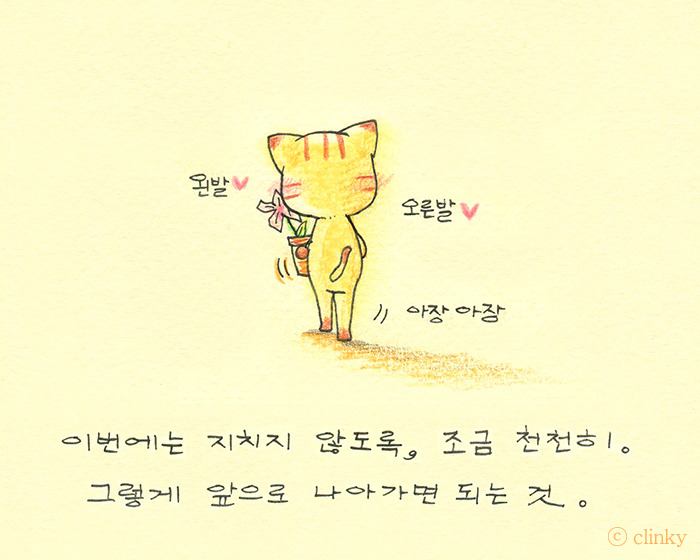 왼발
오른발
아장 아장
이번에는 지치지 않도록, 조금 천천히.
그렇게 앞으로 나아가면 되는 것.
ⓒ clinky